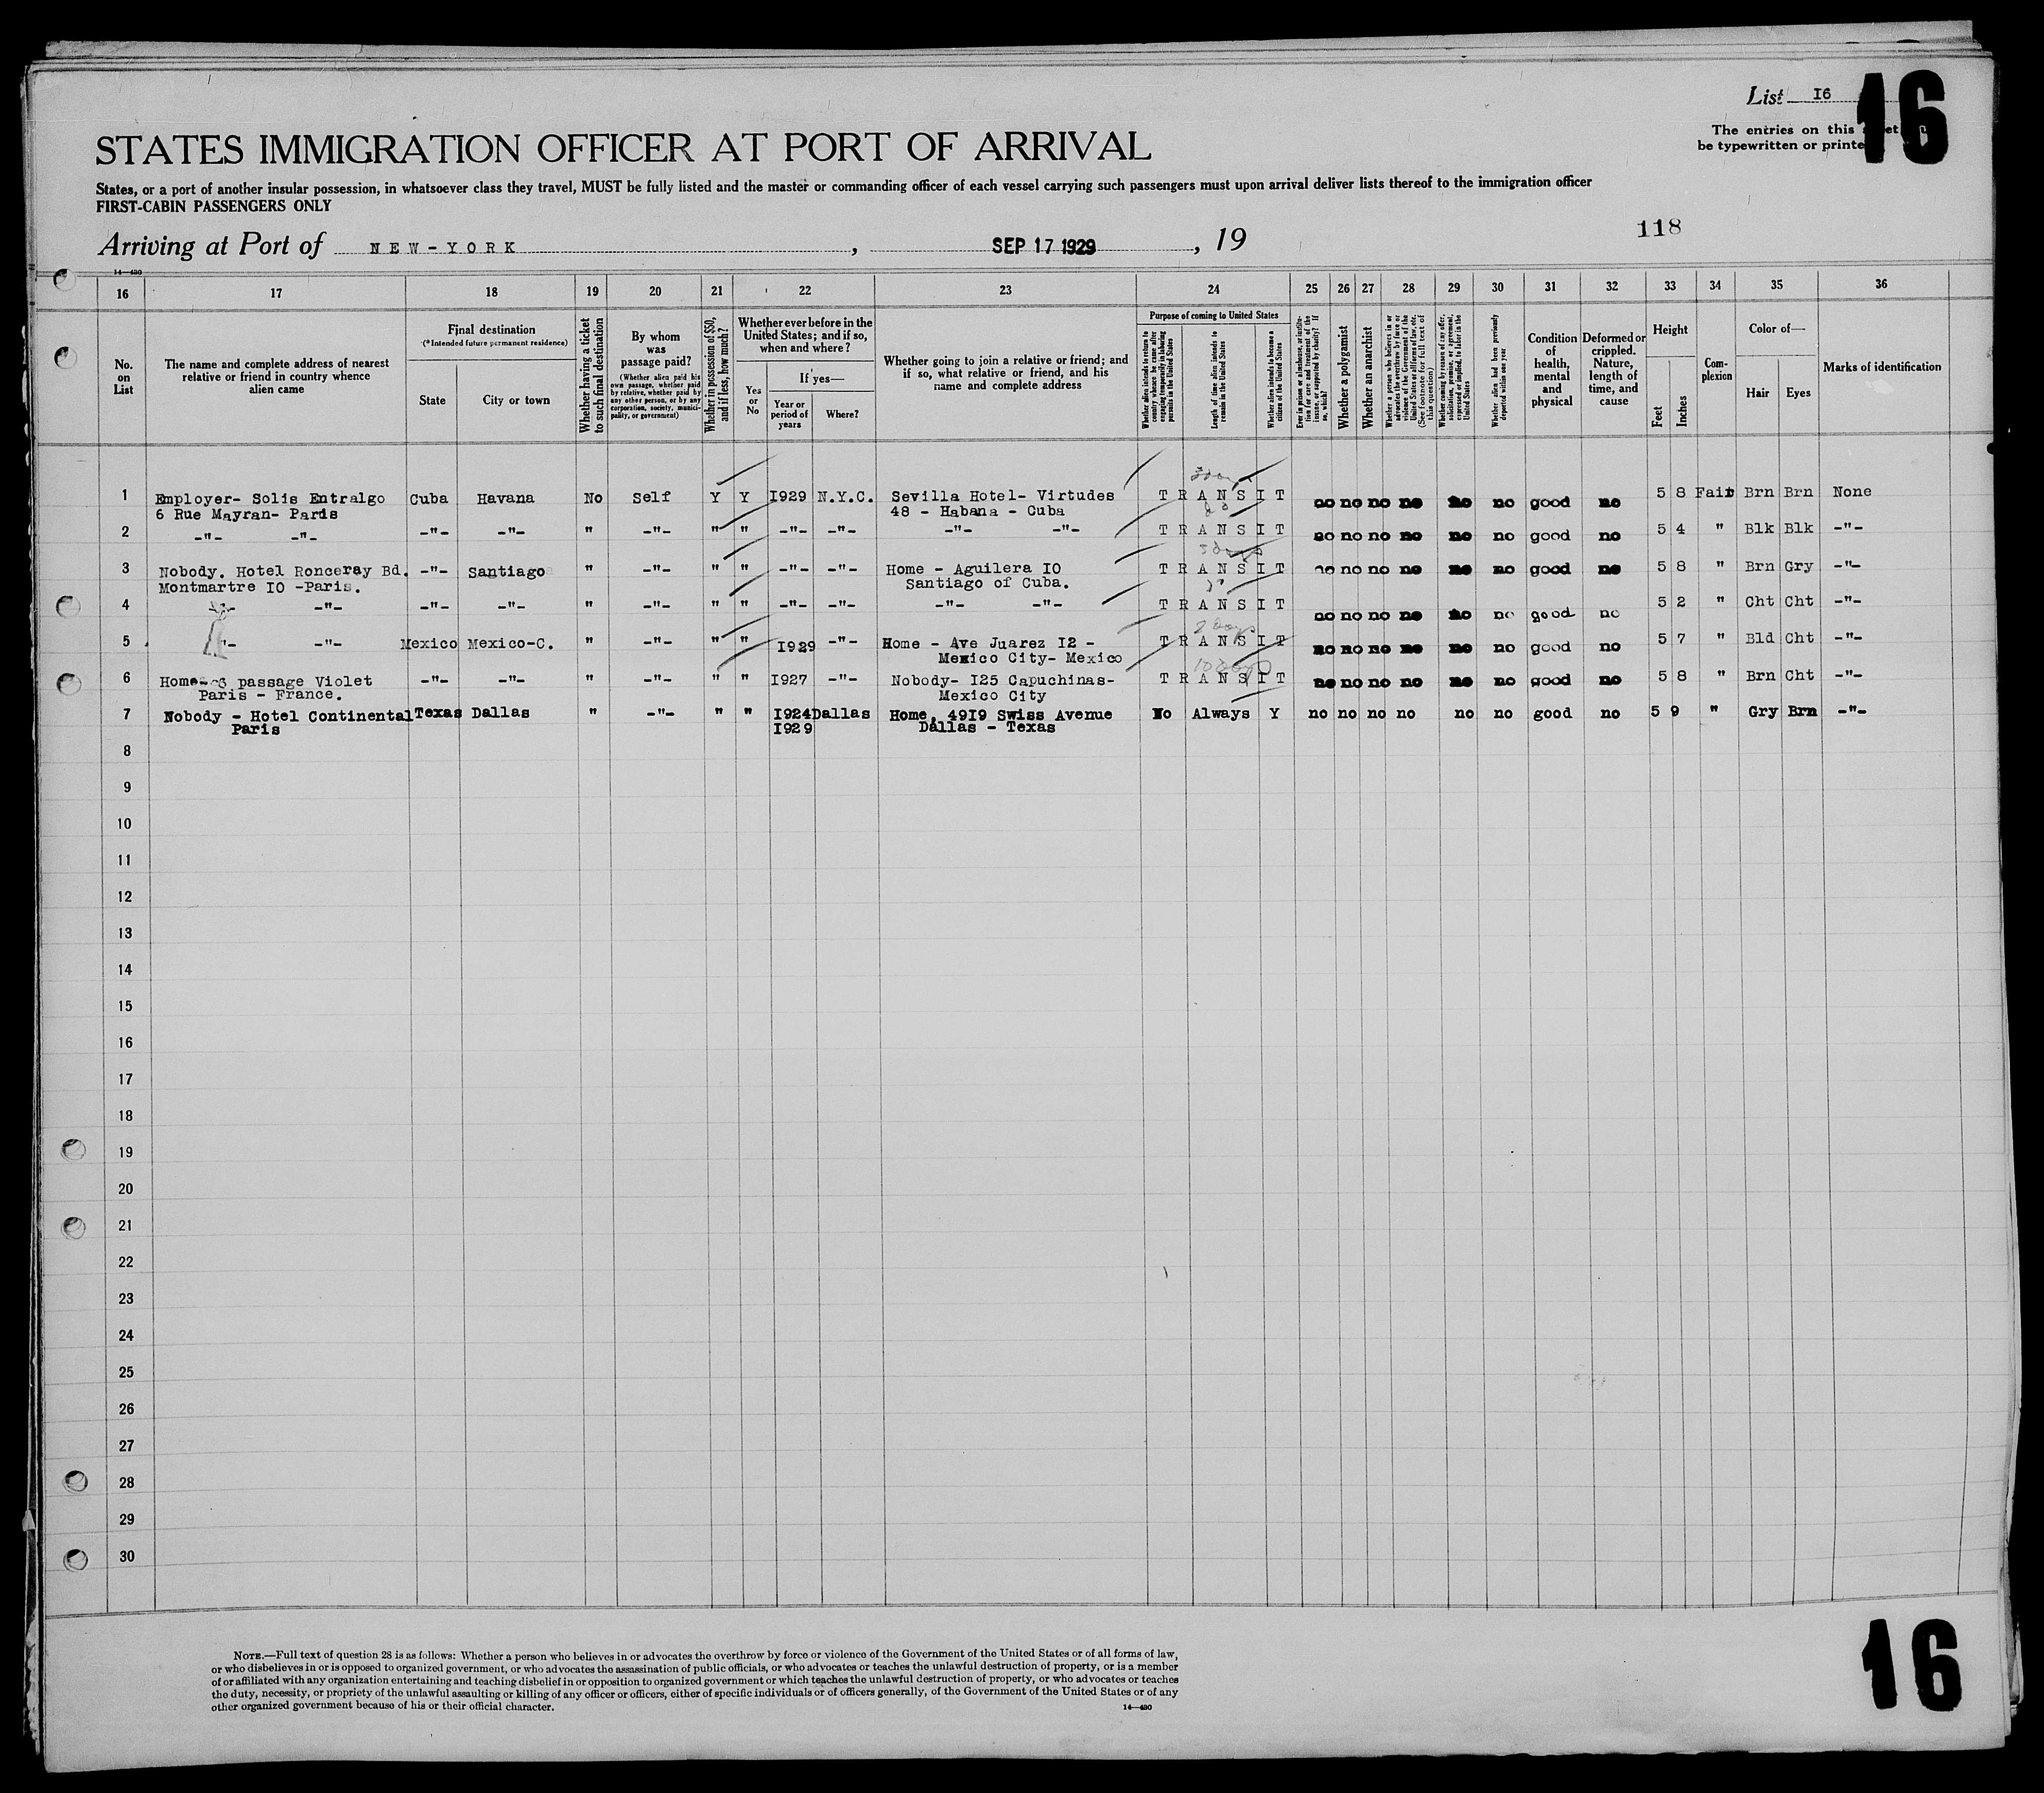 List 16
16
The entries on this
be typewritten or printe
STATES IMMIGRATION OFFICER AT PORT OF ARRIVAL
States, or a port of another insular possession, in whatsoever class they travel, MUST be fully listed and the master or commanding officer of each vessel carrying such passengers must upon arrival deliver lists thereof to the immigration officer
FIRST-CABIN PASSENGERS ONLY
118
Arriving at Port of NEW-YORK, SEP 17 1929, 19
14—430
16 17 18 19 20 21 22 23 24 25 26 27 28 29 30 31 32 33 34 35 36
No. on List
The name and complete address of nearest relative or friend in country whence alien came
Final destination
(*Intended future permanent residence)
State
City or town
Whether having a ticket to such final destination
By whom was passage paid?
(Whether alien paid his own passage, whether paid by relative, whether paid by any other person, or by any corporation, society, municipality, or government)
Whether in possession of $50, and if less, how much?
Whether ever before in the United States; and if so, when and where?
Yes or No
If yes—
Year or period of years
Where?
Whether going to join a relative or friend; and if so, what relative or friend, and his name and complete address
Purpose of coming to United States
Whether alien intends to return to country whence he came after engaging temporarily in laboring pursuits in the United States
Length of time alien intends to remain in the United States
Whether alien intends to become a citizen of the United States
Ever in prison or almshouse, or institution for care and treatment of the insane, or supported by charity? If so, which?
Whether a polygamist
Whether an anarchist
Whether a person who believes in or advocates the overthrow by force or violence of the Government of the United States or all forms of law, etc. (See footnote for full text of this question)
Whether coming by reason of any offer, solicitation, promise, or agreement, expressed or implied, to labor in the United States
Whether alien had been previously deported within one year
Condition of health, mental and physical
Deformed or crippled. Nature, length of time, and cause
Height
Feet
Inches
Complexion
Color of—
Hair
Eyes
Marks of identification
1 Employer- Solis Entralgo Cuba Havana No Self Y Y 1929 N.Y.C. Sevilla Hotel- Virtudes TRANSIT no no no no no no good no 5 8 Fair Brn Brn None
6 Rue Mayran- Paris 48 - Habana - Cuba
2 -"- -"- -"- -"- " -"- " " -"- -"- -"- -"- TRANSIT no no no no no no good no 5 4 " Blk Blk -"-
3 Nobody. Hotel Ronceray Bd. -"- Santiago " -"- " " -"- -"- Home - Aguilera 10 TRANSIT no no no no no no good no 5 8 " Brn Gry -"-
Montmartre 10 -Paris. Santiago of Cuba.
4 -"- -"- -"- -"- " -"- " " -"- -"- -"- -"- TRANSIT no no no no no no good no 5 2 " Cht Cht -"-
2 Days
5 -"- -"- Mexico Mexico-C. " -"- " " 1929 -"- Home - Ave Juarez 12 - TRANSIT no no no no no no good no 5 7 " Bld Cht -"-
Mexico City- Mexico
6 Home- 6 passage Violet -"- -"- " -"- " " 1927 -"- Nobody- 125 Capuchinas- TRANSIT no no no no no no good no 5 8 " Brn Cht -"-
Paris - France. Mexico City
7 Nobody - Hotel Continental Texas Dallas " -"- " " 1924 Dallas Home, 4919 Swiss Avenue No Always Y no no no no no no good no 5 9 " Gry Brn -"-
Paris 1929 Dallas - Texas
8
9
10
11
12
13
14
15
16
17
18
19
20
21
22
23
24
25
26
27
28
29
30
NOTE.—Full text of question 28 is as follows: Whether a person who believes in or advocates the overthrow by force or violence of the Government of the United States or of all forms of law,
or who disbelieves in or is opposed to organized government, or who advocates the assassination of public officials, or who advocates or teaches the unlawful destruction of property, or is a member
of or affiliated with any organization entertaining and teaching disbelief in or opposition to organized government or which teaches the unlawful destruction of property, or who advocates or teaches
the duty, necessity, or propriety of the unlawful assaulting or killing of any officer or officers, either of specific individuals or of officers generally, of the Government of the United States or of any
other organized government because of his or their official character.
14—430
16